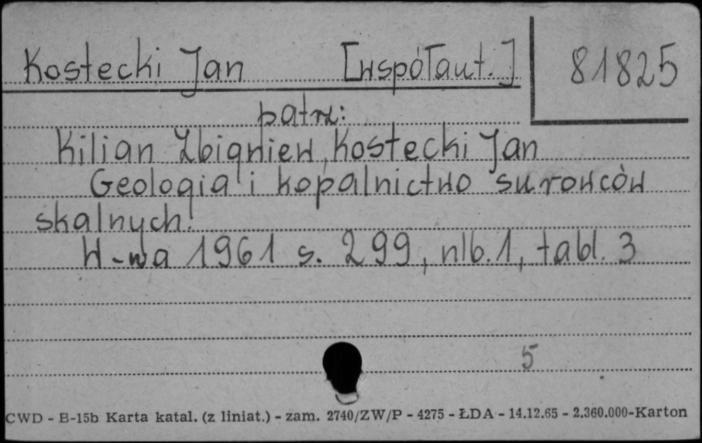 Kostecki Jan [współaut.] 81825
patrz:
Kilian Zbigniew, Kostecki Jan
Geologia i kopalnictwo surowców
skalnych.
W-wa 1961 s. 299, nlb. 1, tabl. 3
5
CWD - B-15b Karta katal. (z liniat.) - zam. 2740/ZW/P - 4275 - ŁDA - 14.12.65 - 2.360.000-Karton